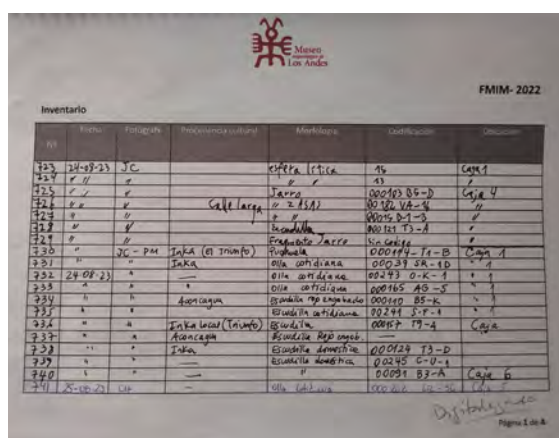 Museo
Los Andes
FMIM- 2022
Inventario
N° Fecha Fotografx Procedencia cultural Morfología Codificación Ubicación
723 24-08-23 JC esfera lítica 15 Caja 1
724 " " " " " 13 "
725 " " " Jarro 000103 B5-D Caja 4
726 " " " Calle larga " 2 ASAS 00182 VA-16 "
727 " " " " 00015 D-1-B "
728 " " Escudilla 000121 T3-A "
729 " " Fragmento Jarro Sin codigo "
730 " JC - PM Inka (El Triunfo) T1-B Caja 1
731 " " Inka Olla cotidiana 00039 SR-1D " 1
732 24-08-23 " — Olla cotidiana 00243 O-K-1 " 1
733 " " — Olla cotidiana 000165 AG-5 " 1
734 " " Aconcagua Escudilla rojo engobado 000110 B5-K " 1
735 " " Escudilla cotidiana 00241 S-F-1 " 1
736 " " Inka Local (Triunfo) Escudilla 000157 T9-4 Caja
737 " " Aconcagua Escudilla Rojo engob. —
738 " " Inka Escudilla domestica 000124 T3-D
739 " " — Escudilla domestica 00245 C-U-1
740 " " — — 00091 B3-A Caja 6
741 25-08-23 Olla Caja 5
Digitalizado
Página 1 de 4